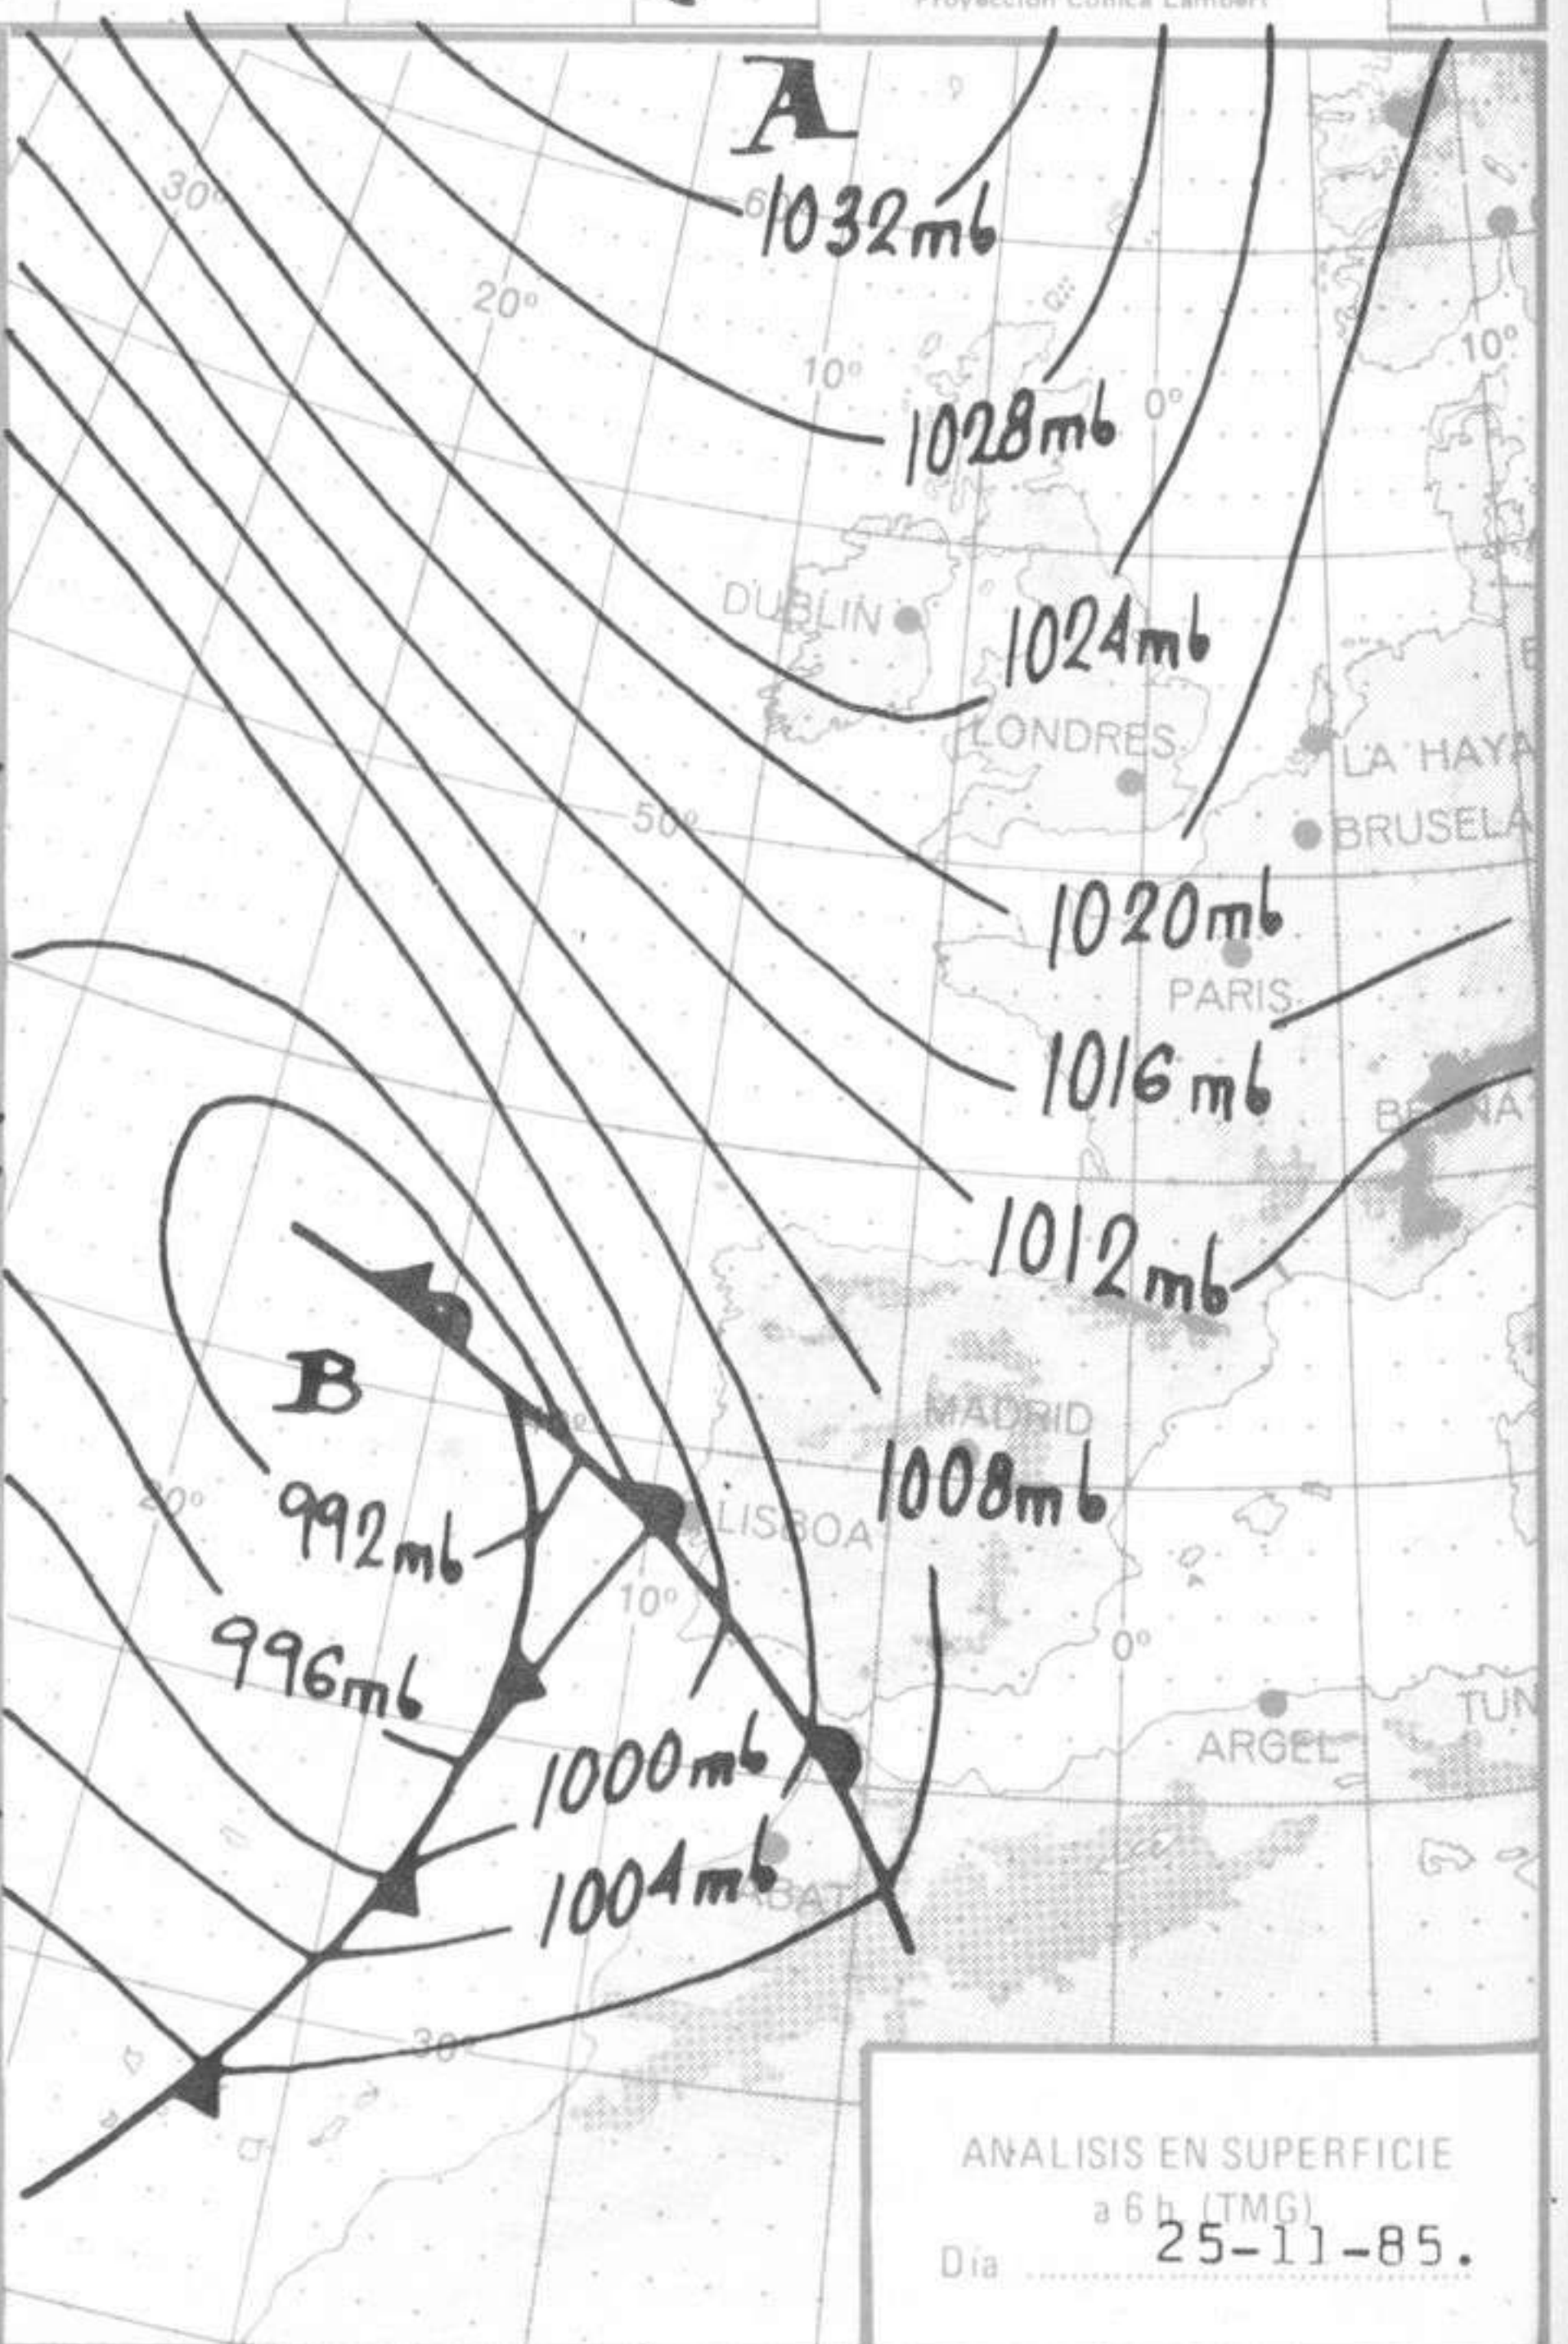 Proyección Cónica Lambert
A
30°
1032mb
20°
10°
10°
0°
1028mb
DUBLIN
1024mb
LONDRES
LA HAYA
50°
BRUSELA
1020mb
PARIS
1016mb
BERNA
1012mb
B
MADRID
20°
992mb
LISBOA
1008mb
10°
0°
996mb
1000mb
ARGEL
TUN
1004mb
RABAT
30°
ANALISIS EN SUPERFICIE
a 6 h (TMG)
Día 25-11-85.